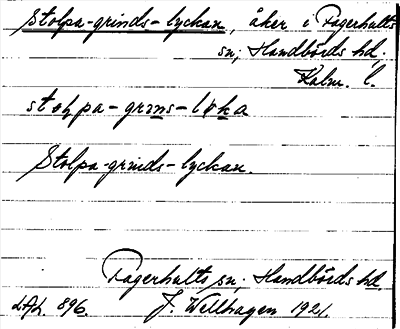 Stolpa-grinds-lyckan, åker i Fagerhults
sn, Handbörds hd,
Kalm. l.
Stolpa-grinds-lyckan.
Fagerhults sn, Handbörds hd.
J. Wellhagen 1921.
896.